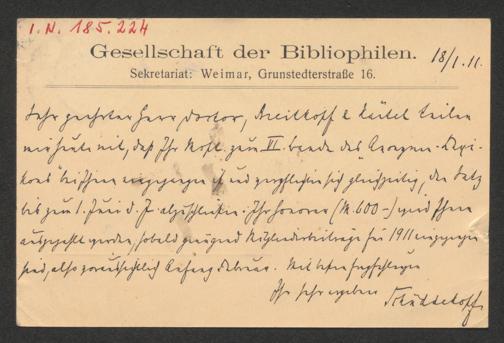 I.N. 185.224
Gesellschaft der Bibliophilen.
18/1.11.
Sekretariat: Weimar, Grunstedterstraße 16.
Sehr geehrter Herr Doktor, Breitkopf & Härtel teilen
mir heute mit, daß Ihr Mskt. zum VI. Bande des "Anonymen-Lexi-
kons" bei ihnen eingegangen ist und verpflichten sich gleichzeitig, den Satz
bis zum 1. Juni d. J. abzuschließen. Ihr Honorar (M. 600-) wird Ihnen
ausgezahlt werden, sobald genügend Mitgliederbeiträge für 1911 eingegangen
sind, also voraussichtlich Anfang Februar. Mit besten Empfehlungen
Ihr sehr ergebener Schüddekopf